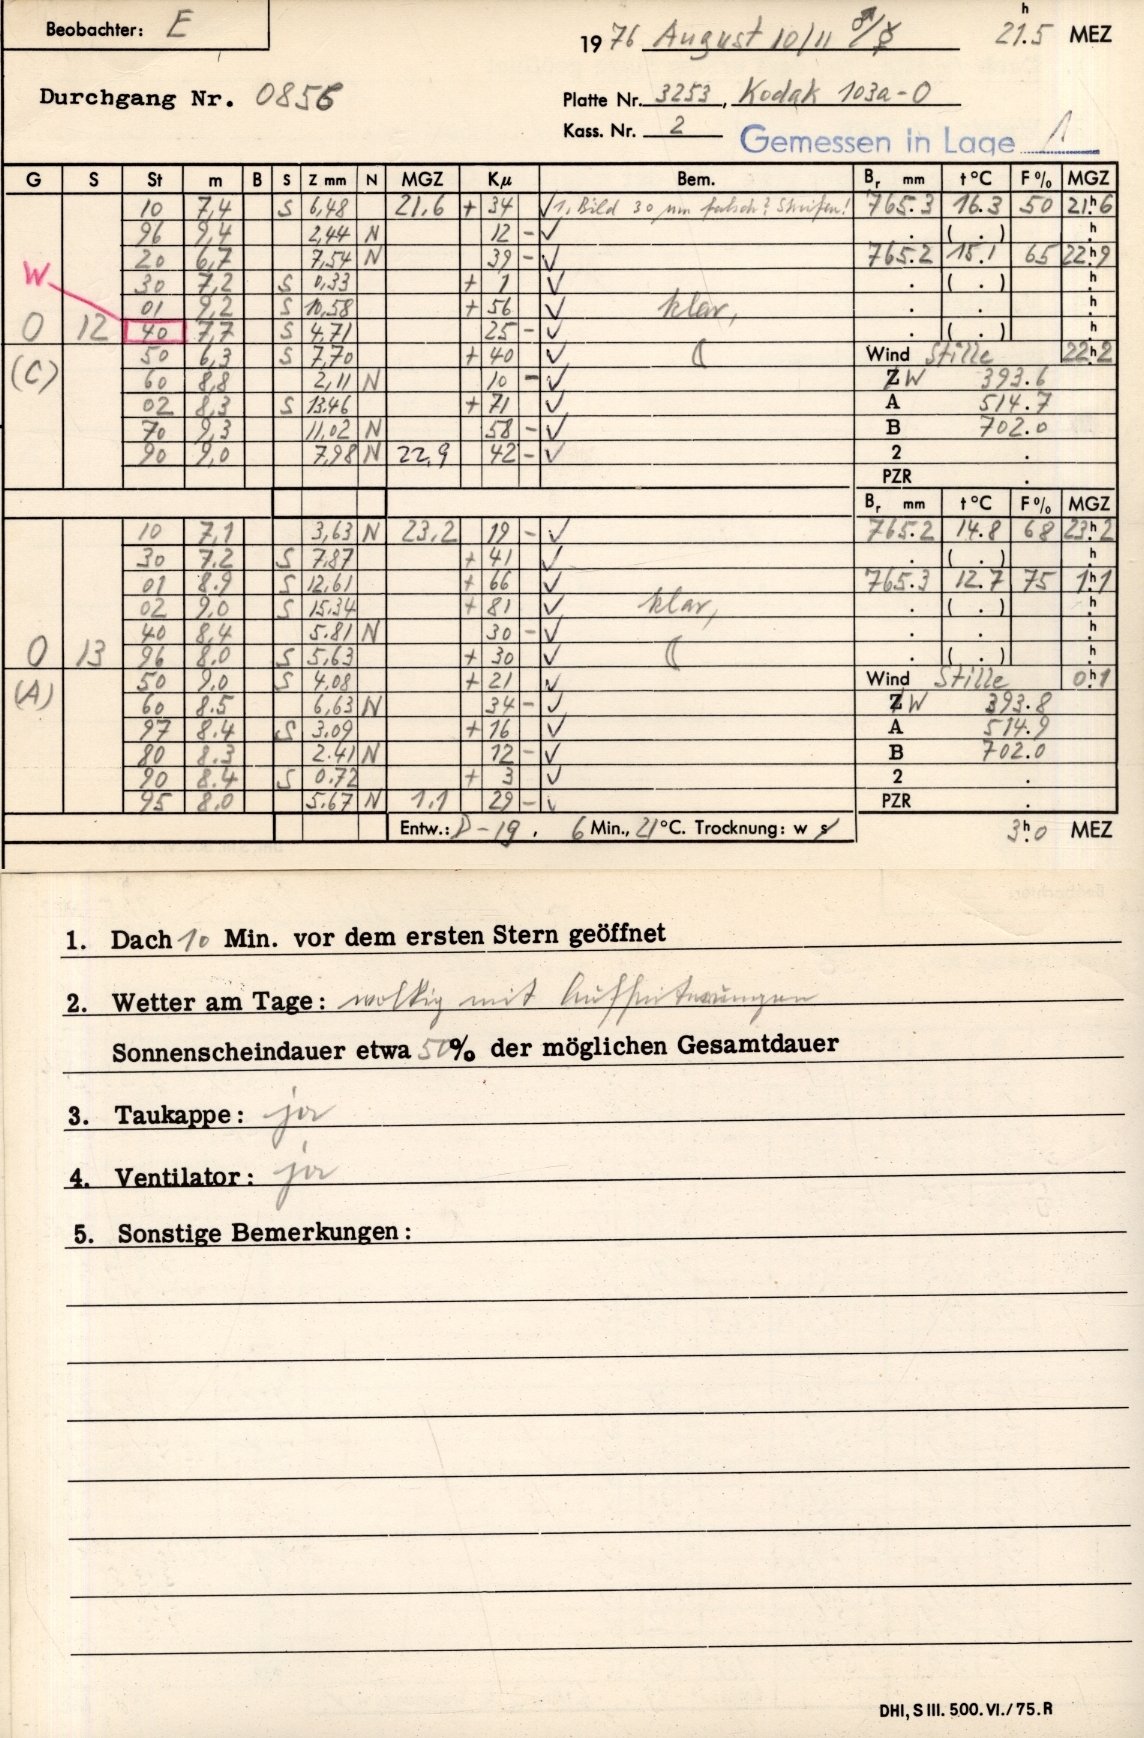 Beobachter: E
1976 August 10/11 ♂/☿ 21.5 h MEZ
Durchgang Nr. 0856
Platte Nr. 3253, Kodak 103a-O
Kass. Nr. 2
Gemessen in Lage 1
G S St m B S Z mm N MGZ Kμ Bem. Br mm t°C F% MGZ
10 7,4 S 6,48 21,6 + 34 √ 1. Bild 30 μm falsch? Streifen! 765.3 16.3 50 21h6
96 9,4 2,44 N 12 - √ . ( . ) h
20 6,7 7,54 N 39 - √ 765.2 15.1 65 22h9
W
30 7,2 S 0,33 + 1 √ . ( . ) h
01 9,2 S 10,58 + 56 √ klar, . . h
O 12 40 7,7 S 4,71 25 - √ . ( . ) h
(C) 50 6,3 S 7,70 + 40 √ ☾ Wind Stille 22h2
60 8,8 2,11 N 10 - √ ZW 393.6
02 8,3 S 13,46 + 71 √ A 514.7
70 9,3 11,02 N 58 - √ B 702.0
90 9,0 7,98 N 22,9 42 - √ 2 .
PZR .
Br mm t°C F% MGZ
10 7,1 3,63 N 23,2 19 - √ 765.2 14.8 68 23h2
30 7.2 S 7,87 + 41 √ . ( . ) h
01 8.9 S 12,61 + 66 √ 765.3 12.7 75 1h1
02 9,0 S 15,34 + 81 √ klar, . ( . ) h
40 8,4 5.81 N 30 - √ . . h
O 13 96 8.0 S 5,63 + 30 √ ☾ . ( . ) h
(A) 50 9.0 S 4,08 + 21 √ Wind Stille 0h1
60 8.5 6,63 N 34 - √ ZW 393.8
97 8.4 S 3.09 + 16 √ A 514.9
80 8.3 2.41 N 12 - √ B 702.0
90 8.4 S 0.72 + 3 √ 2 .
95 8.0 5.67 N 1.1 29 - √ PZR .
Entw.: D-19, 6 Min., 21°C. Trocknung: w s 3h0 MEZ
1. Dach 10 Min. vor dem ersten Stern geöffnet
2. Wetter am Tage: wolkig mit Aufheiterungen
Sonnenscheindauer etwa 50% der möglichen Gesamtdauer
3. Taukappe: ja
4. Ventilator: ja
5. Sonstige Bemerkungen:
DHI, S III. 500. VI./75. R